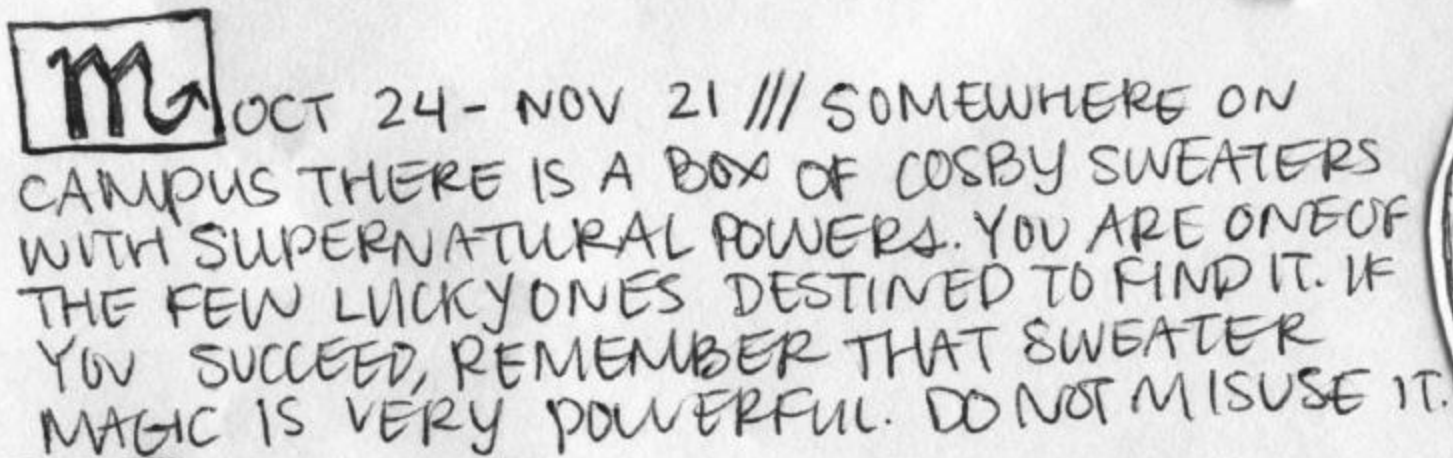 ♏ OCT 24 - NOV 21 /// SOMEWHERE ON
CAMPUS THERE IS A BOX OF COSBY SWEATERS
WITH SUPERNATURAL POWERS. YOU ARE ONE OF
THE FEW LUCKY ONES DESTINED TO FIND IT. IF
YOU SUCCEED, REMEMBER THAT SWEATER
MAGIC IS VERY POWERFUL. DO NOT MISUSE IT.